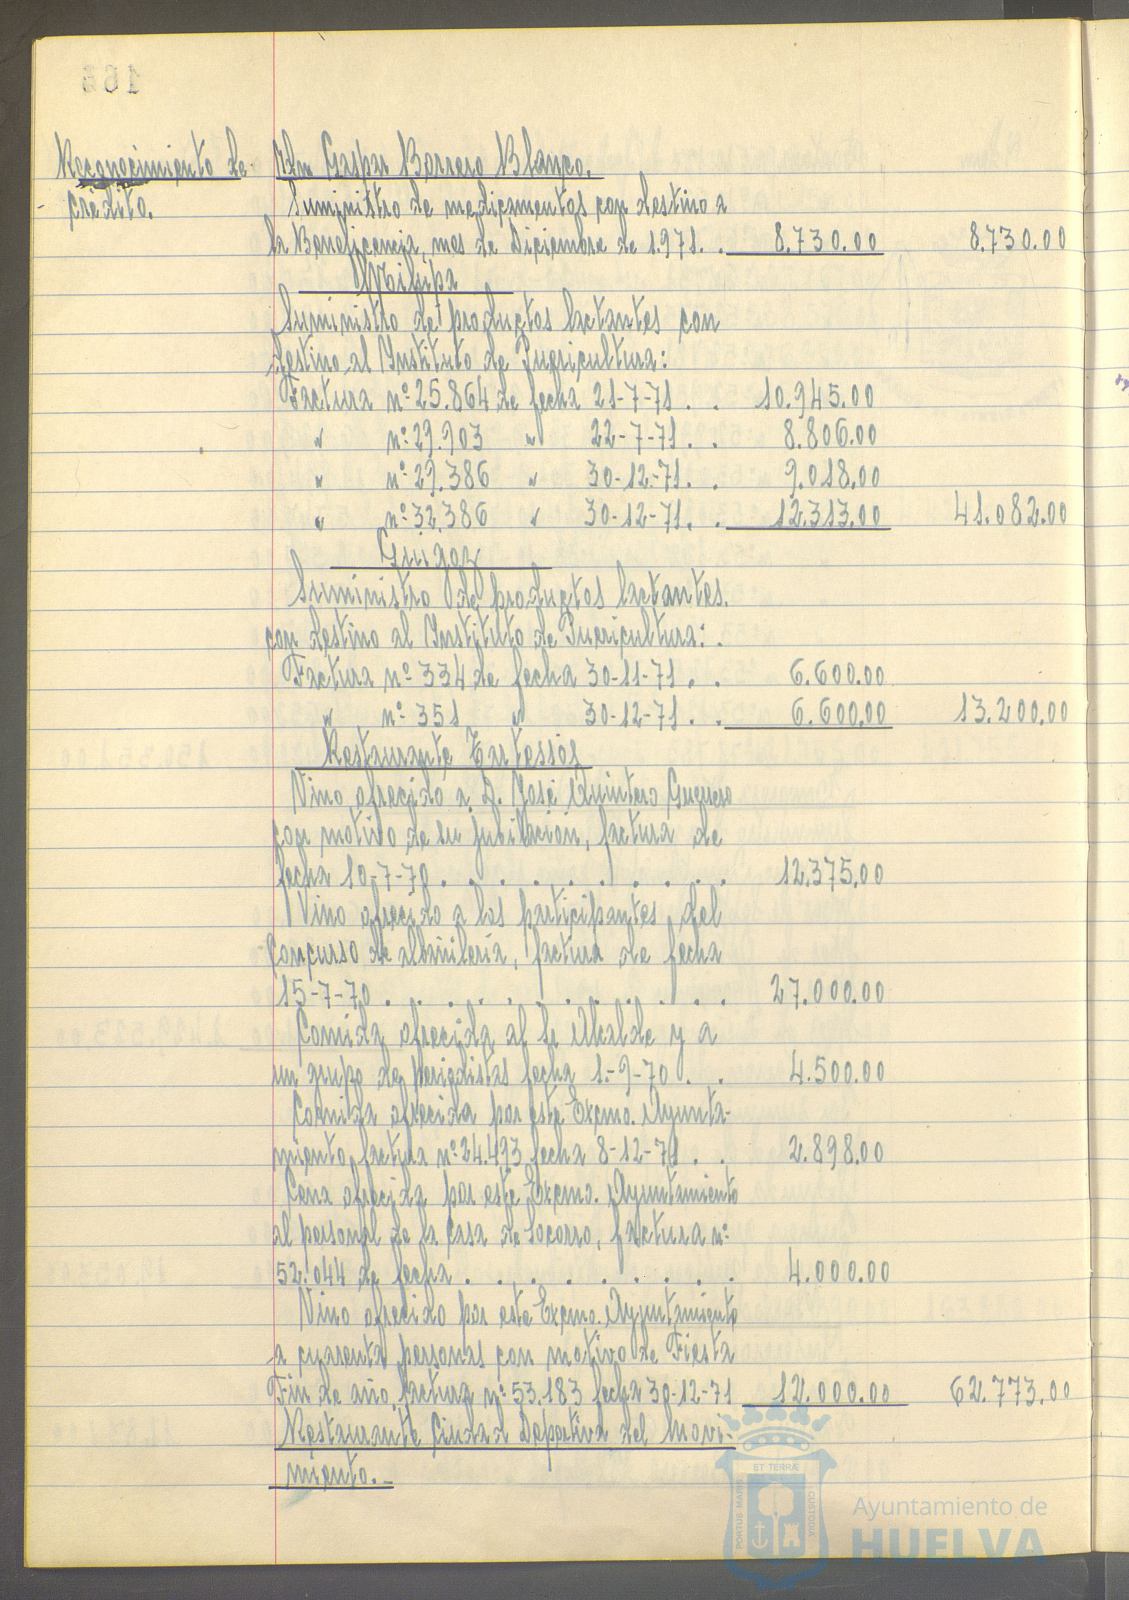 Reconocimiento de
crédito.
Gaspar Borrero Blanco.
Suministro de medicamentos con destino a
la Beneficencia, mes de Diciembre de 1.971. . 8.730.00 8.730.00
Milupa
Suministro de productos lactantes con
destino al Instituto de Puericultura:
Factura nº 25.864 de fecha 21-7-71 . . 10.945.00
" nº 29.903 " 22-7-71 . . 8.806.00
" nº 29.386 " 30-12-71 . . 9.018.00
" nº 32.386 " 30-12-71 . . 12.313.00 41.082.00
Guigoz
Suministro de productos lactantes.
con destino al Instituto de Puericultura: .
Factura nº 334 de fecha 30-11-71 . . 6.600.00
" nº 351 " 30-12-71 . . 6.600.00 13.200.00
Restaurante Tartessos
Vino ofrecido a D. José Quintero
con motivo de su jubilación, factura de
fecha 10-7-70 . . . . . . . . . . 12.375.00
Vino ofrecido a los participantes del
Concurso de albañilería, factura de fecha
15-7-70 . . . . . . . . . . . . 27.000.00
Comida ofrecida al Sr Alcalde y a
un grupo de periodistas fecha 1-9-70 . . 4.500.00
Comida ofrecida por este Excmo. Ayunta-
miento, factura nº 24.493 fecha 8-12-71 . . 2.898.00
Cena ofrecida por este Excmo. Ayuntamiento
al personal de la Casa de Socorro, factura nº
52.044 de fecha . . . . . . . . . 4.000.00
Vino ofrecido por este Excmo. Ayuntamiento
a cuarenta personas con motivo de Fiesta
Fin de año, factura nº 53.183 fecha 30-12-71 12.000.00 62.773.00
Restaurante Ciudad Deportiva del Movi-
miento.-
ET TERRÆ
PORTUS MARIS
CUSTODIA
Ayuntamiento de
HUELVA